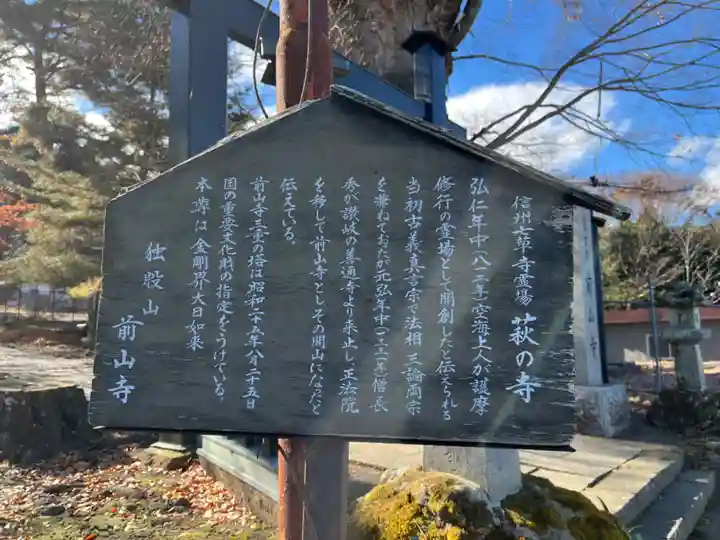 信州七草寺霊場 萩の寺
弘仁年中(八一二年)空海上人が護摩
修行の霊場として開創したと伝えられる
当初古義真言宗で法相三論両宗
を兼ねておったが元弘年中(一三三一年)僧長
秀が讃岐の善通寺より来止し、正法院
を移して前山寺としその開山になったと
伝えている。
前山寺三重の塔は昭和二十五年八月二十五日
国の重要文化財の指定をうけている。
本尊は 金剛界大日如来
独股山 前山寺